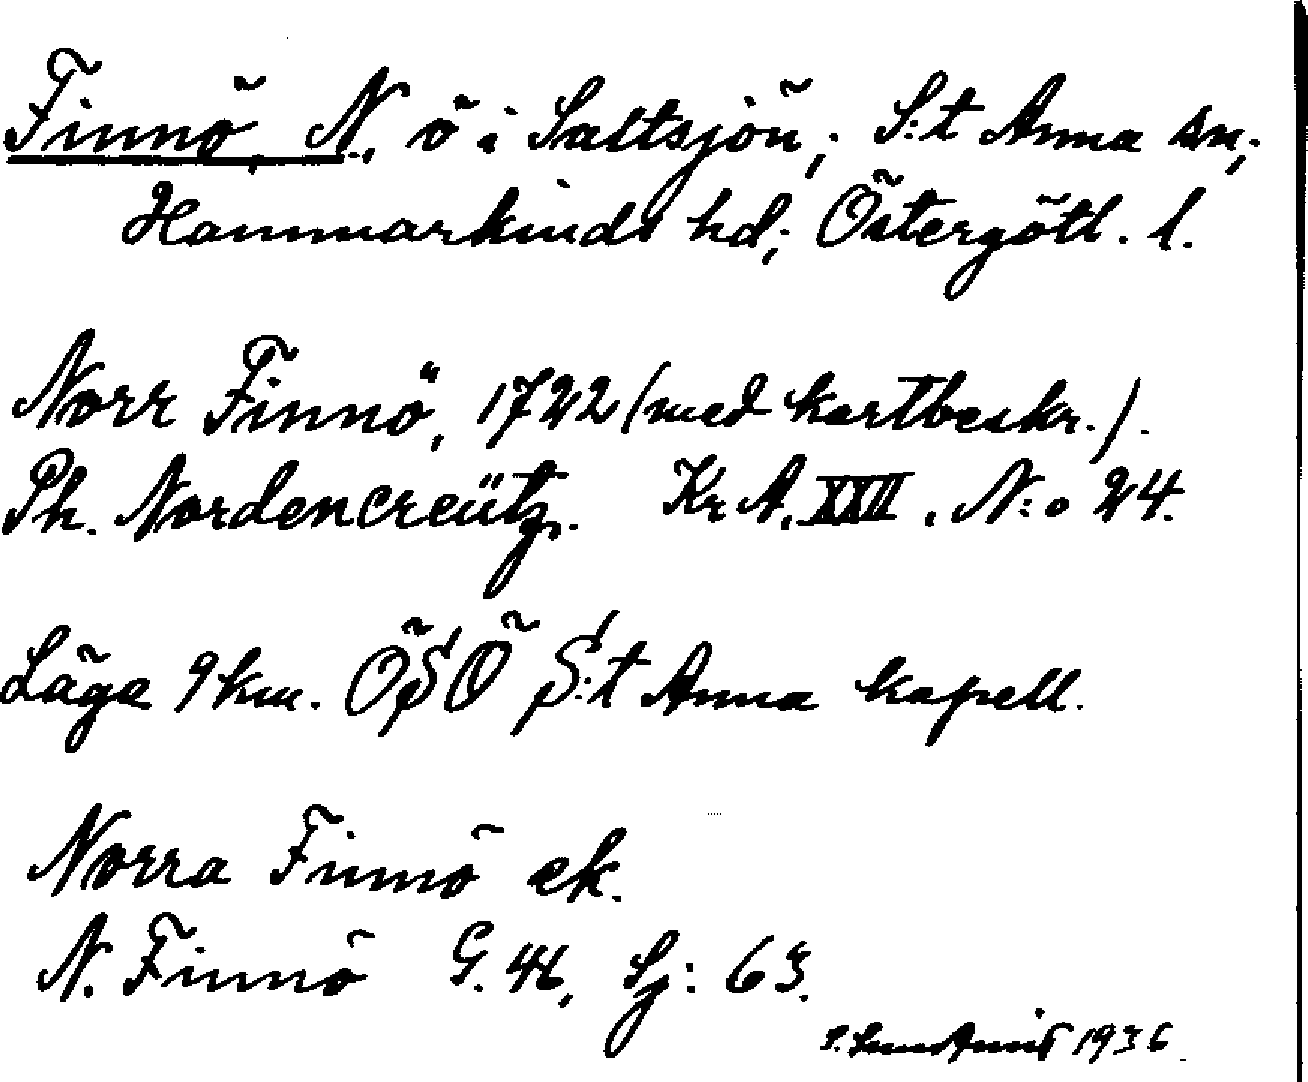 Finnö, N., ö i Saltsjön; S:t Anna sn;
Hammarkinds hd; Östergötl. l.
Norr Finnö, 1722 (med kartbeskr.).
Ph. Nordencreütz. Kr A. XXII. N:o 24.
Läge 9 km. ÖSÖ S:t Anna kapell.
Norra Finnö ek.
N. Finnö G. 46, Sj: 63.
1936